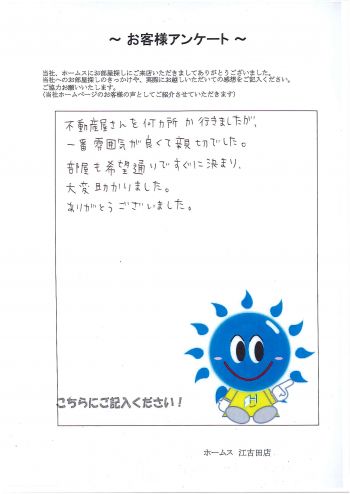 ～ お客様アンケート ～
当社、ホームスにお部屋探しにご来店いただきましてありがとうございました。
当社へのお部屋探しのきっかけや、実際にお越しいただいての感想をご記入ください。
ご協力お願いいたします。
(当社ホームページのお客様の声としてご紹介させていただきます)
不動産屋さんを何カ所か行きましたが、
一番雰囲気が良くて親切でした。
部屋も希望通りですぐに決まり、
大変助かりました。
ありがとうございました。
こちらにご記入ください！
ホームス 江古田店